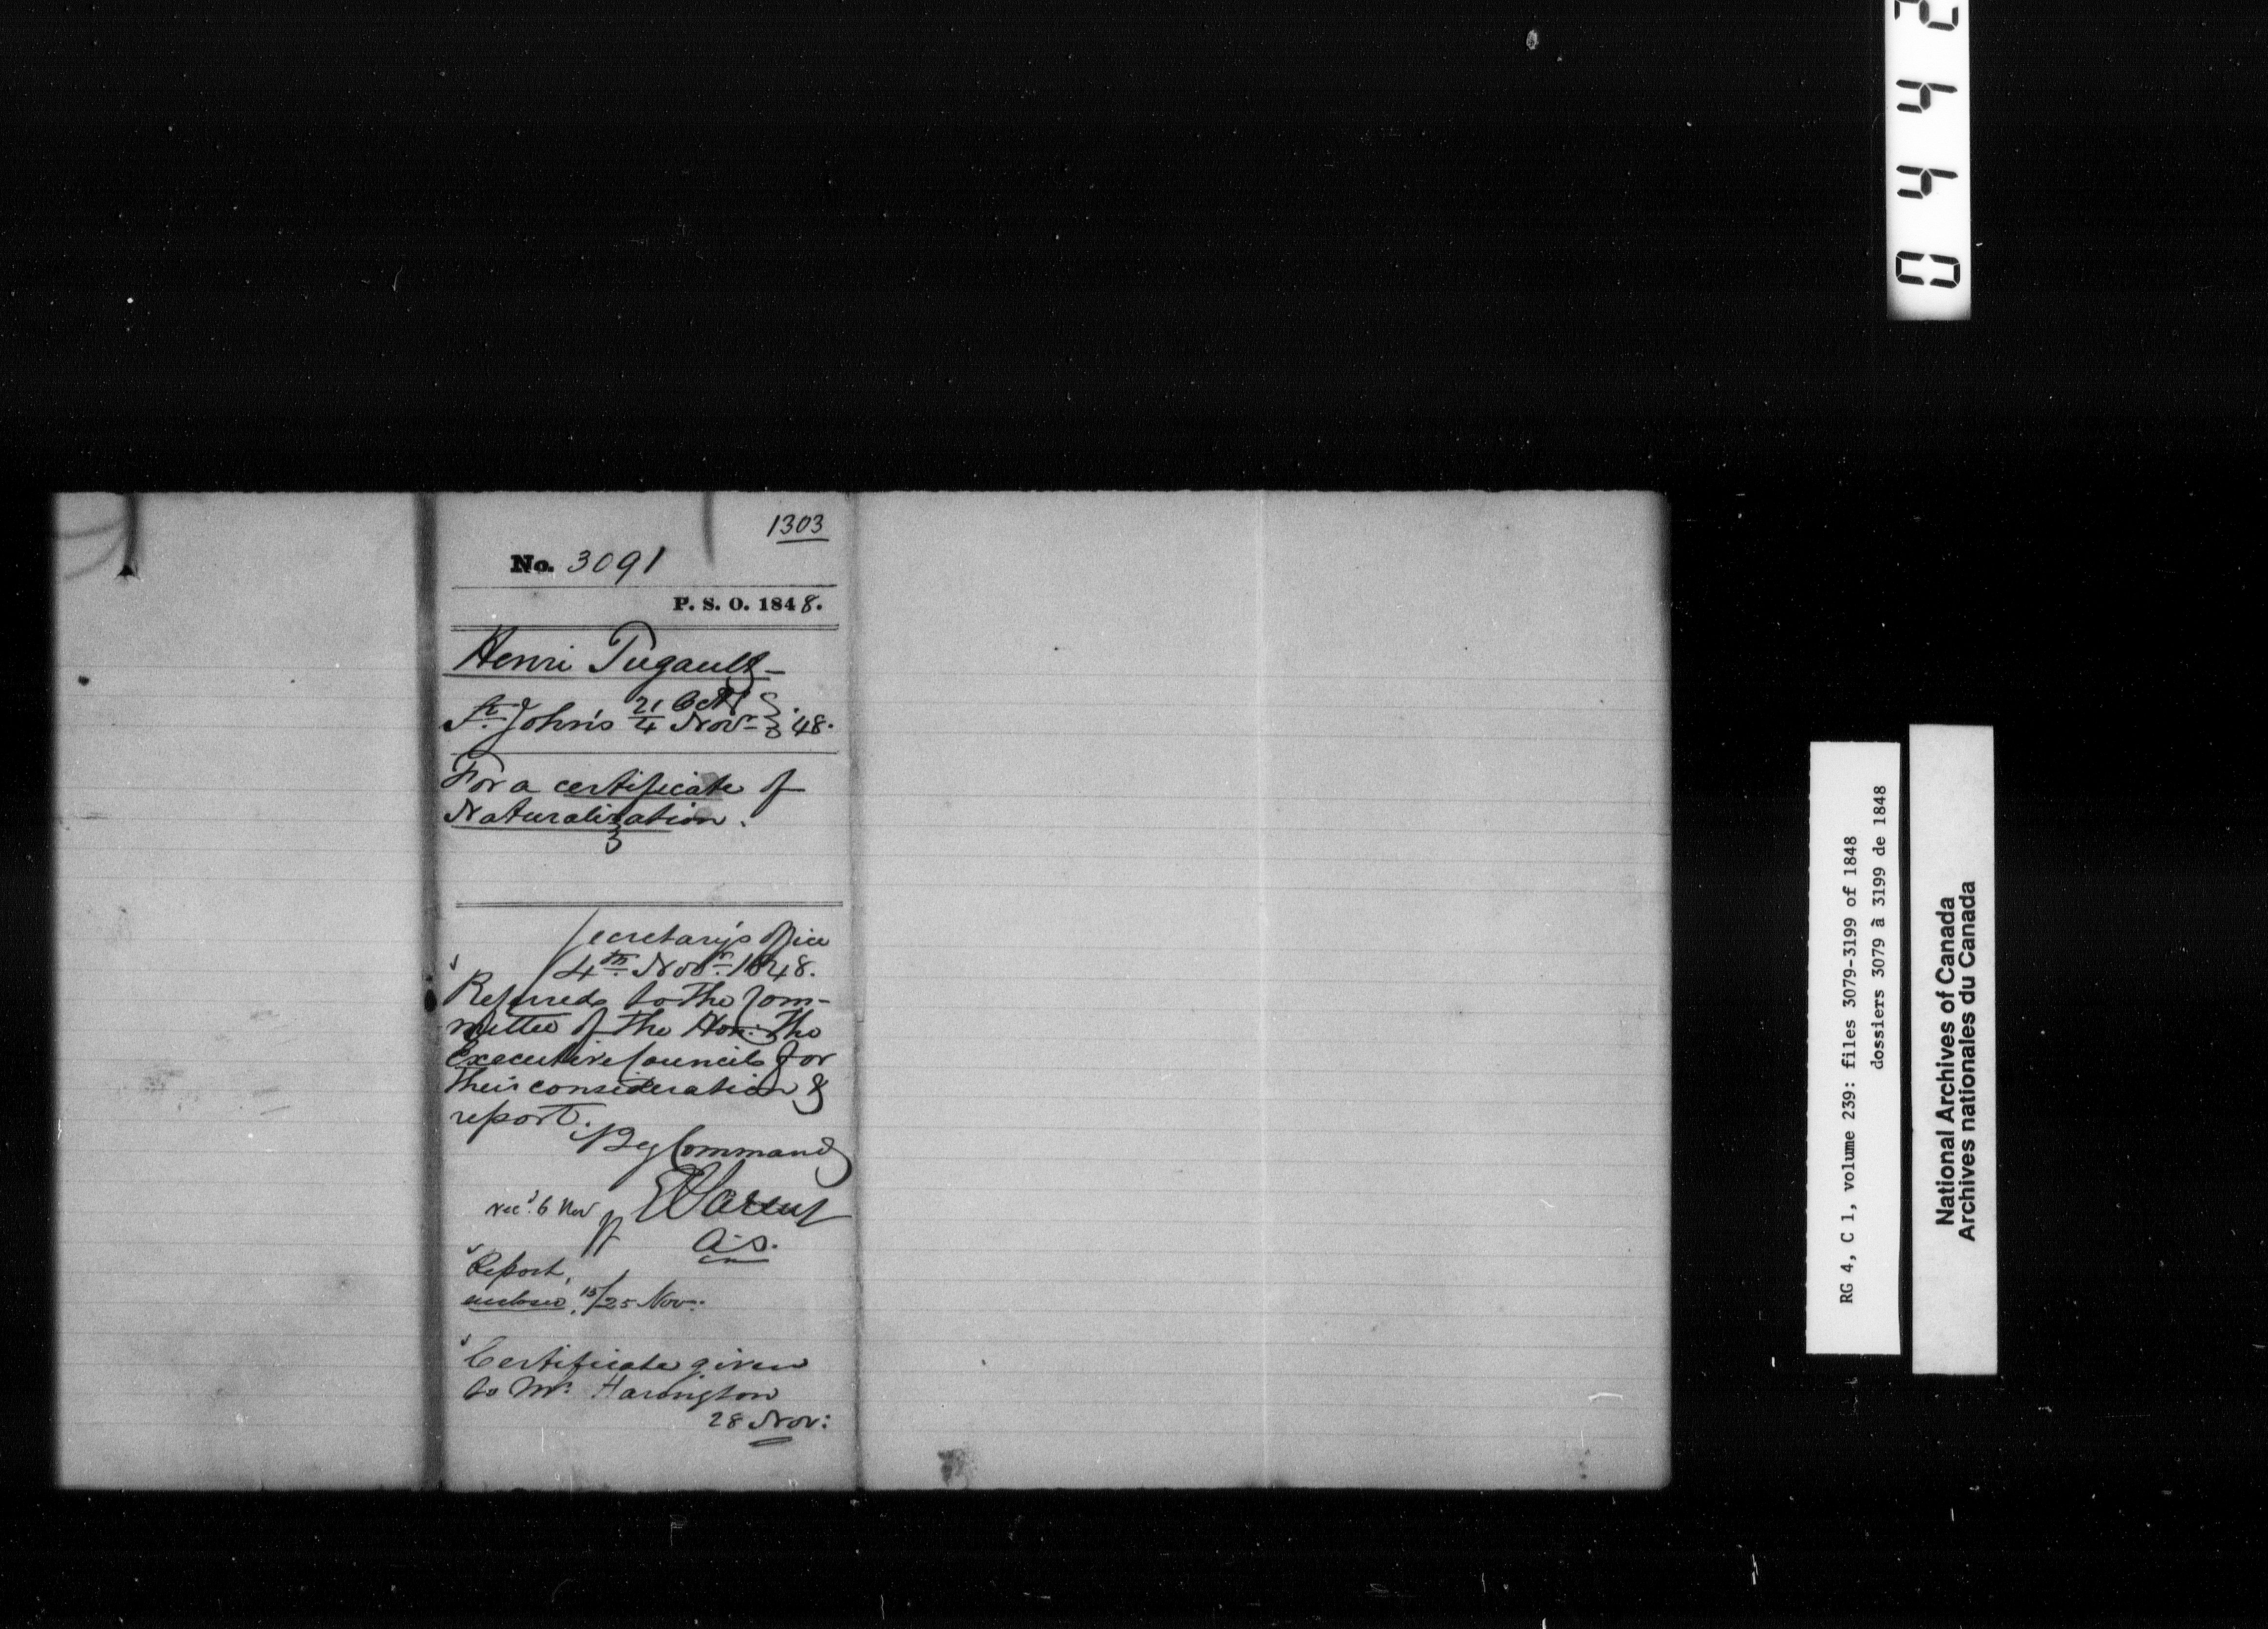 1303
No. 3091
P. S. O. 1848.
Henri Pugault
St. John's 21 Octr
4 Novr } 48.
For a certificate of
Naturalization.
Secretary's Office
4th Novr. 1848.
Referred to the Com-
mittee of the Hon: The
Executive Council for
their consideration &
report.
By Command
E Parent
A. S.
recd. 6 Nov
Report
enclosed, 15/25 Nov:
Certificate given
to Mr. Harington
28 Nov:
0442
RG 4, C 1, volume 239: files 3079-3199 of 1848
dossiers 3079 à 3199 de 1848
National Archives of Canada
Archives nationales du Canada